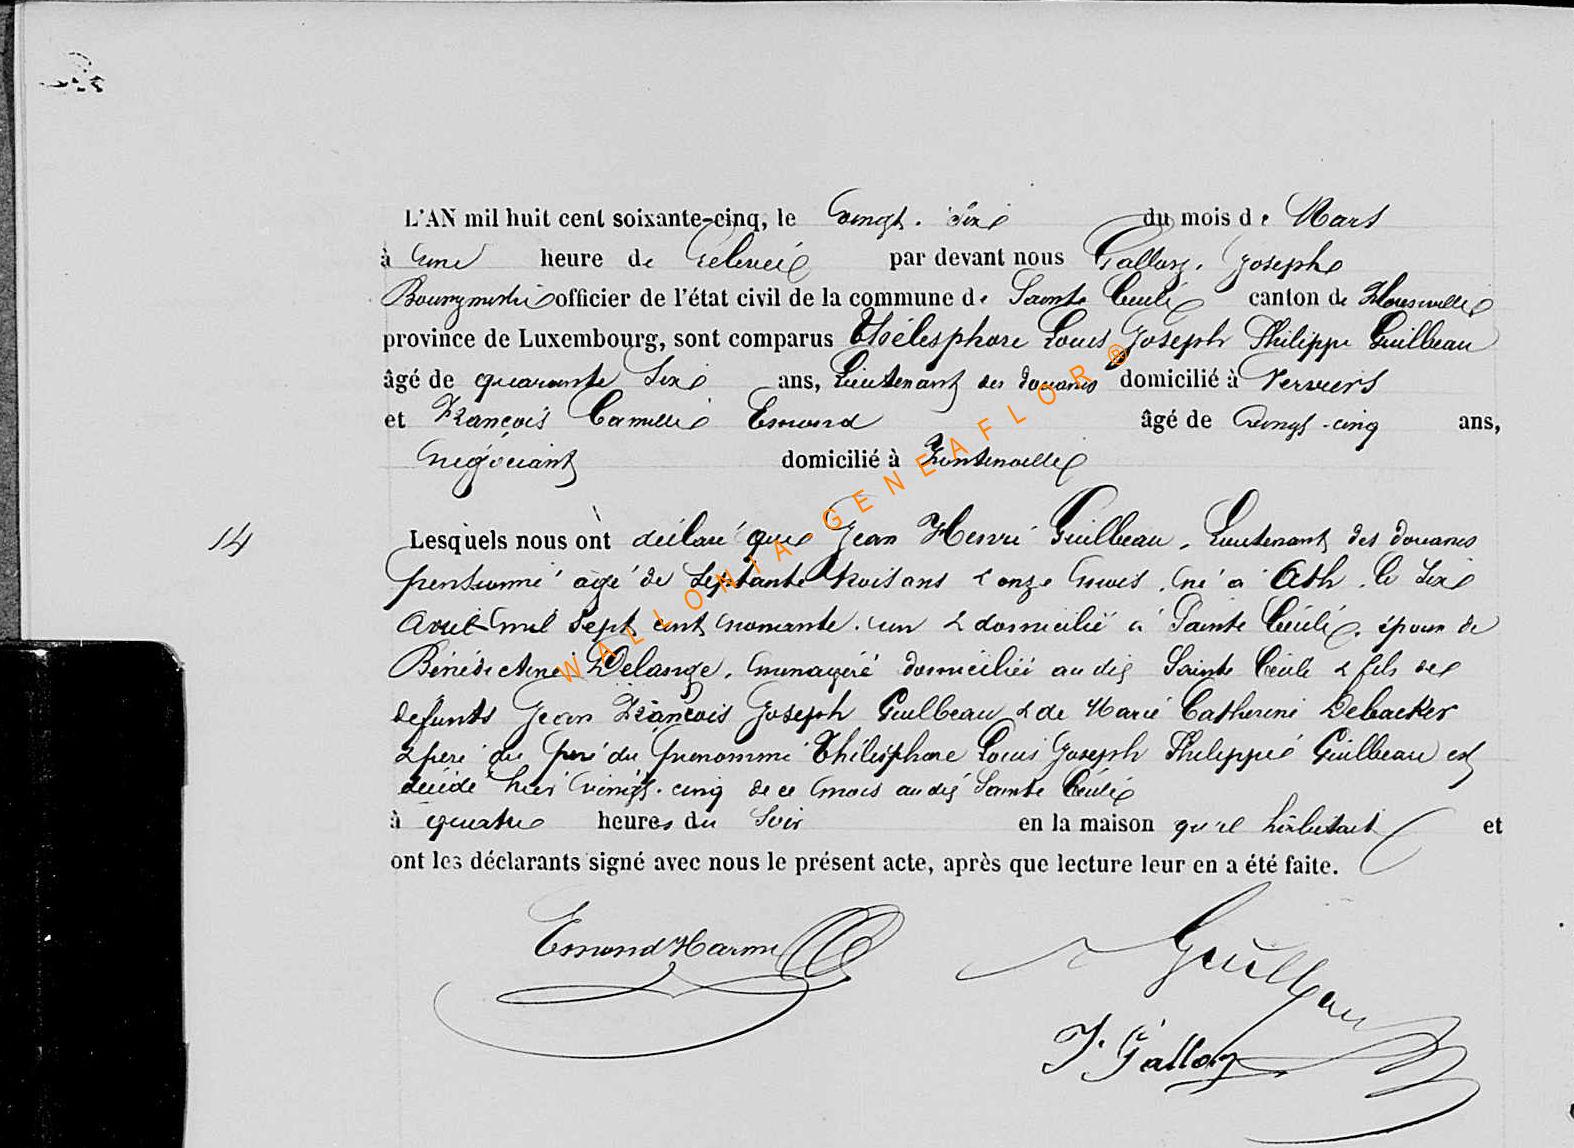 L'AN mil huit cent soixante-cinq, le vingt-six du mois de Mars
à une heure de relevée par devant nous Galloz, Joseph
Bourgmestre officier de l'état civil de la commune de Sainte Cécile canton de Florenville
province de Luxembourg, sont comparus Thélesphore Louis Joseph Philippe Guilbeau
âgé de quarante six ans, Lieutenant des douanes domicilié à Verviers
et François Camille Esmond âgé de vingt-cinq ans,
négociant domicilié à Fontenoille
14 Lesquels nous ont déclaré que Jean Henri Guilbeau, Lieutenant des douanes
pensionné âgé de septante trois ans & onze mois, né à Ath, le six
avril mil sept cent nonante-un & domicilié à Sainte Cécile, époux de
Bénédictine Delange, ménagère domiciliée au dit Sainte Cécile & fils des
defunts Jean François Joseph Guilbeau & de Marie Catherine Debacker
& père du prénommé Thélesphore Louis Joseph Philippe Guilbeau est
décédé hier vingt-cinq de ce mois au dit Sainte Cécile
à quatre heures du soir en la maison qu'il habitait et
ont les déclarants signé avec nous le présent acte, après que lecture leur en a été faite.
Esmond Guilbeau
J. Galloz
WALLONIA-GENEAFLOR®